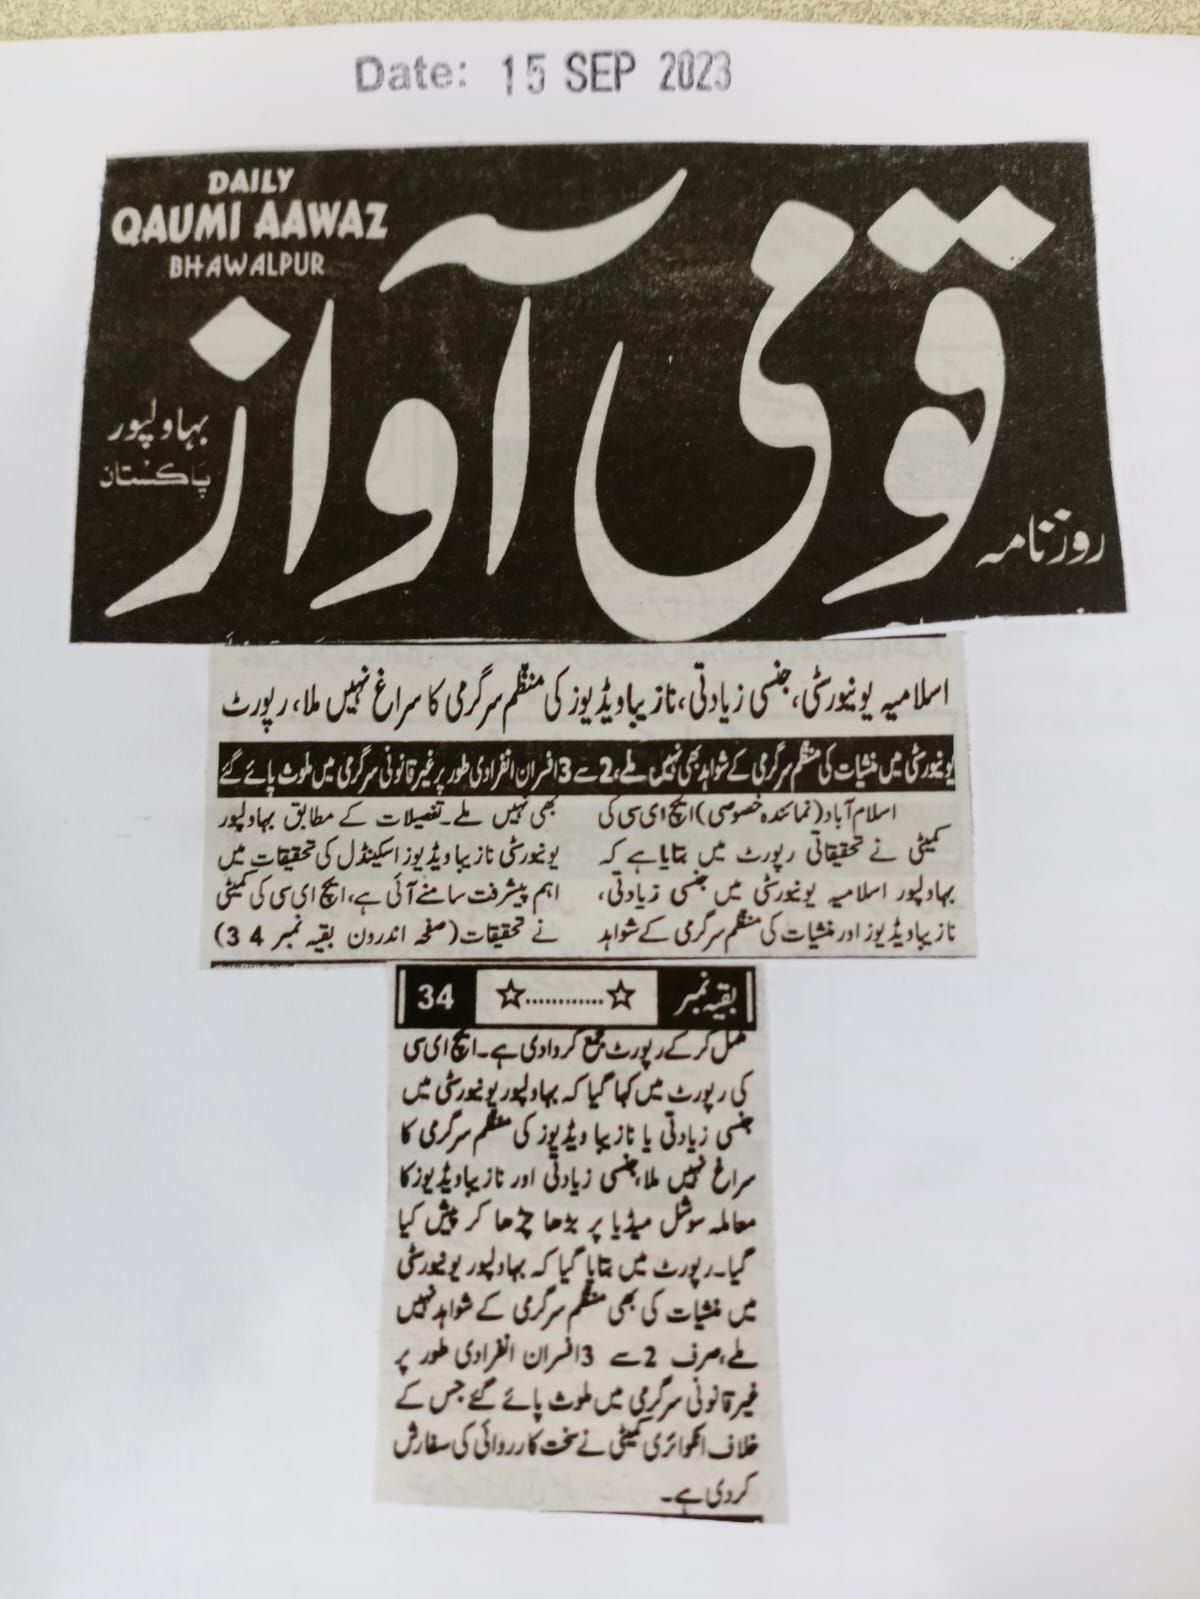 Date: 15 SEP 2023
DAILY
QAUMI AAWAZ
BHAWALPUR
روزنامہ
قومی آواز
بہاولپور
پاکستان
اسلامیہ یونیورسٹی، جنسی زیادتی، نازیباویڈیوز کی منظم سرگرمی کا سراغ نہیں ملا، رپورٹ
یونیورسٹی میں منشیات کی منظم سرگرمی کے شواہد بھی نہیں ملے، 2 سے 3 افسران انفرادی طور پر غیر قانونی سرگرمی میں ملوث پائے گئے
اسلام آباد (نمائندہ خصوصی) ایچ ای سی کی
کمیٹی نے تحقیقاتی رپورٹ میں بتایا ہے کہ
بہاولپور اسلامیہ یونیورسٹی میں جنسی زیادتی،
نازیباویڈیوز اور منشیات کی منظم سرگرمی کے شواہد
بھی نہیں ملے۔ تفصیلات کے مطابق بہاولپور
یونیورسٹی نازیبا ویڈیوز اسکینڈل کی تحقیقات میں
اہم پیشرفت سامنے آئی ہے، ایچ ای سی کی کمیٹی
نے تحقیقات (صفحہ اندرون بقیہ نمبر 34)
بقیہ نمبر ☆............☆ 34
مکمل کر کے رپورٹ جمع کروادی ہے۔ ایچ ای سی
کی رپورٹ میں کہا گیا کہ بہاولپور یونیورسٹی میں
جنسی زیادتی یا نازیبا ویڈیوز کی منظم سرگرمی کا
سراغ نہیں ملا، جنسی زیادتی اور نازیباویڈیوز کا
معاملہ سوشل میڈیا پر بڑھا چڑھا کر پیش کیا
گیا۔ رپورٹ میں بتایا گیا کہ بہاولپور یونیورسٹی
میں منشیات کی بھی منظم سرگرمی کے شواہد نہیں
ملے، صرف 2 سے 3 افسران انفرادی طور پر
غیر قانونی سرگرمی میں ملوث پائے گئے جس کے
خلاف انکوائری کمیٹی نے سخت کارروائی کی سفارش
کر دی ہے۔